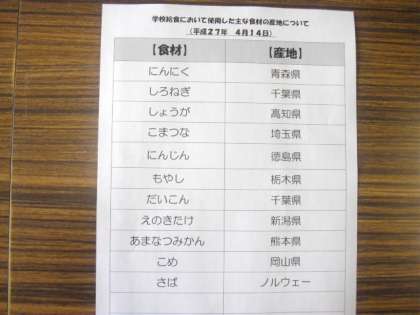 学校給食において使用した主な食材の産地について
（平成２７年　４月１４日）
【食材】 【産地】
にんにく 青森県
しろねぎ 千葉県
しょうが 高知県
こまつな 埼玉県
にんじん 徳島県
もやし 栃木県
だいこん 千葉県
えのきたけ 新潟県
あまなつみかん 熊本県
こめ 岡山県
さば ノルウェー